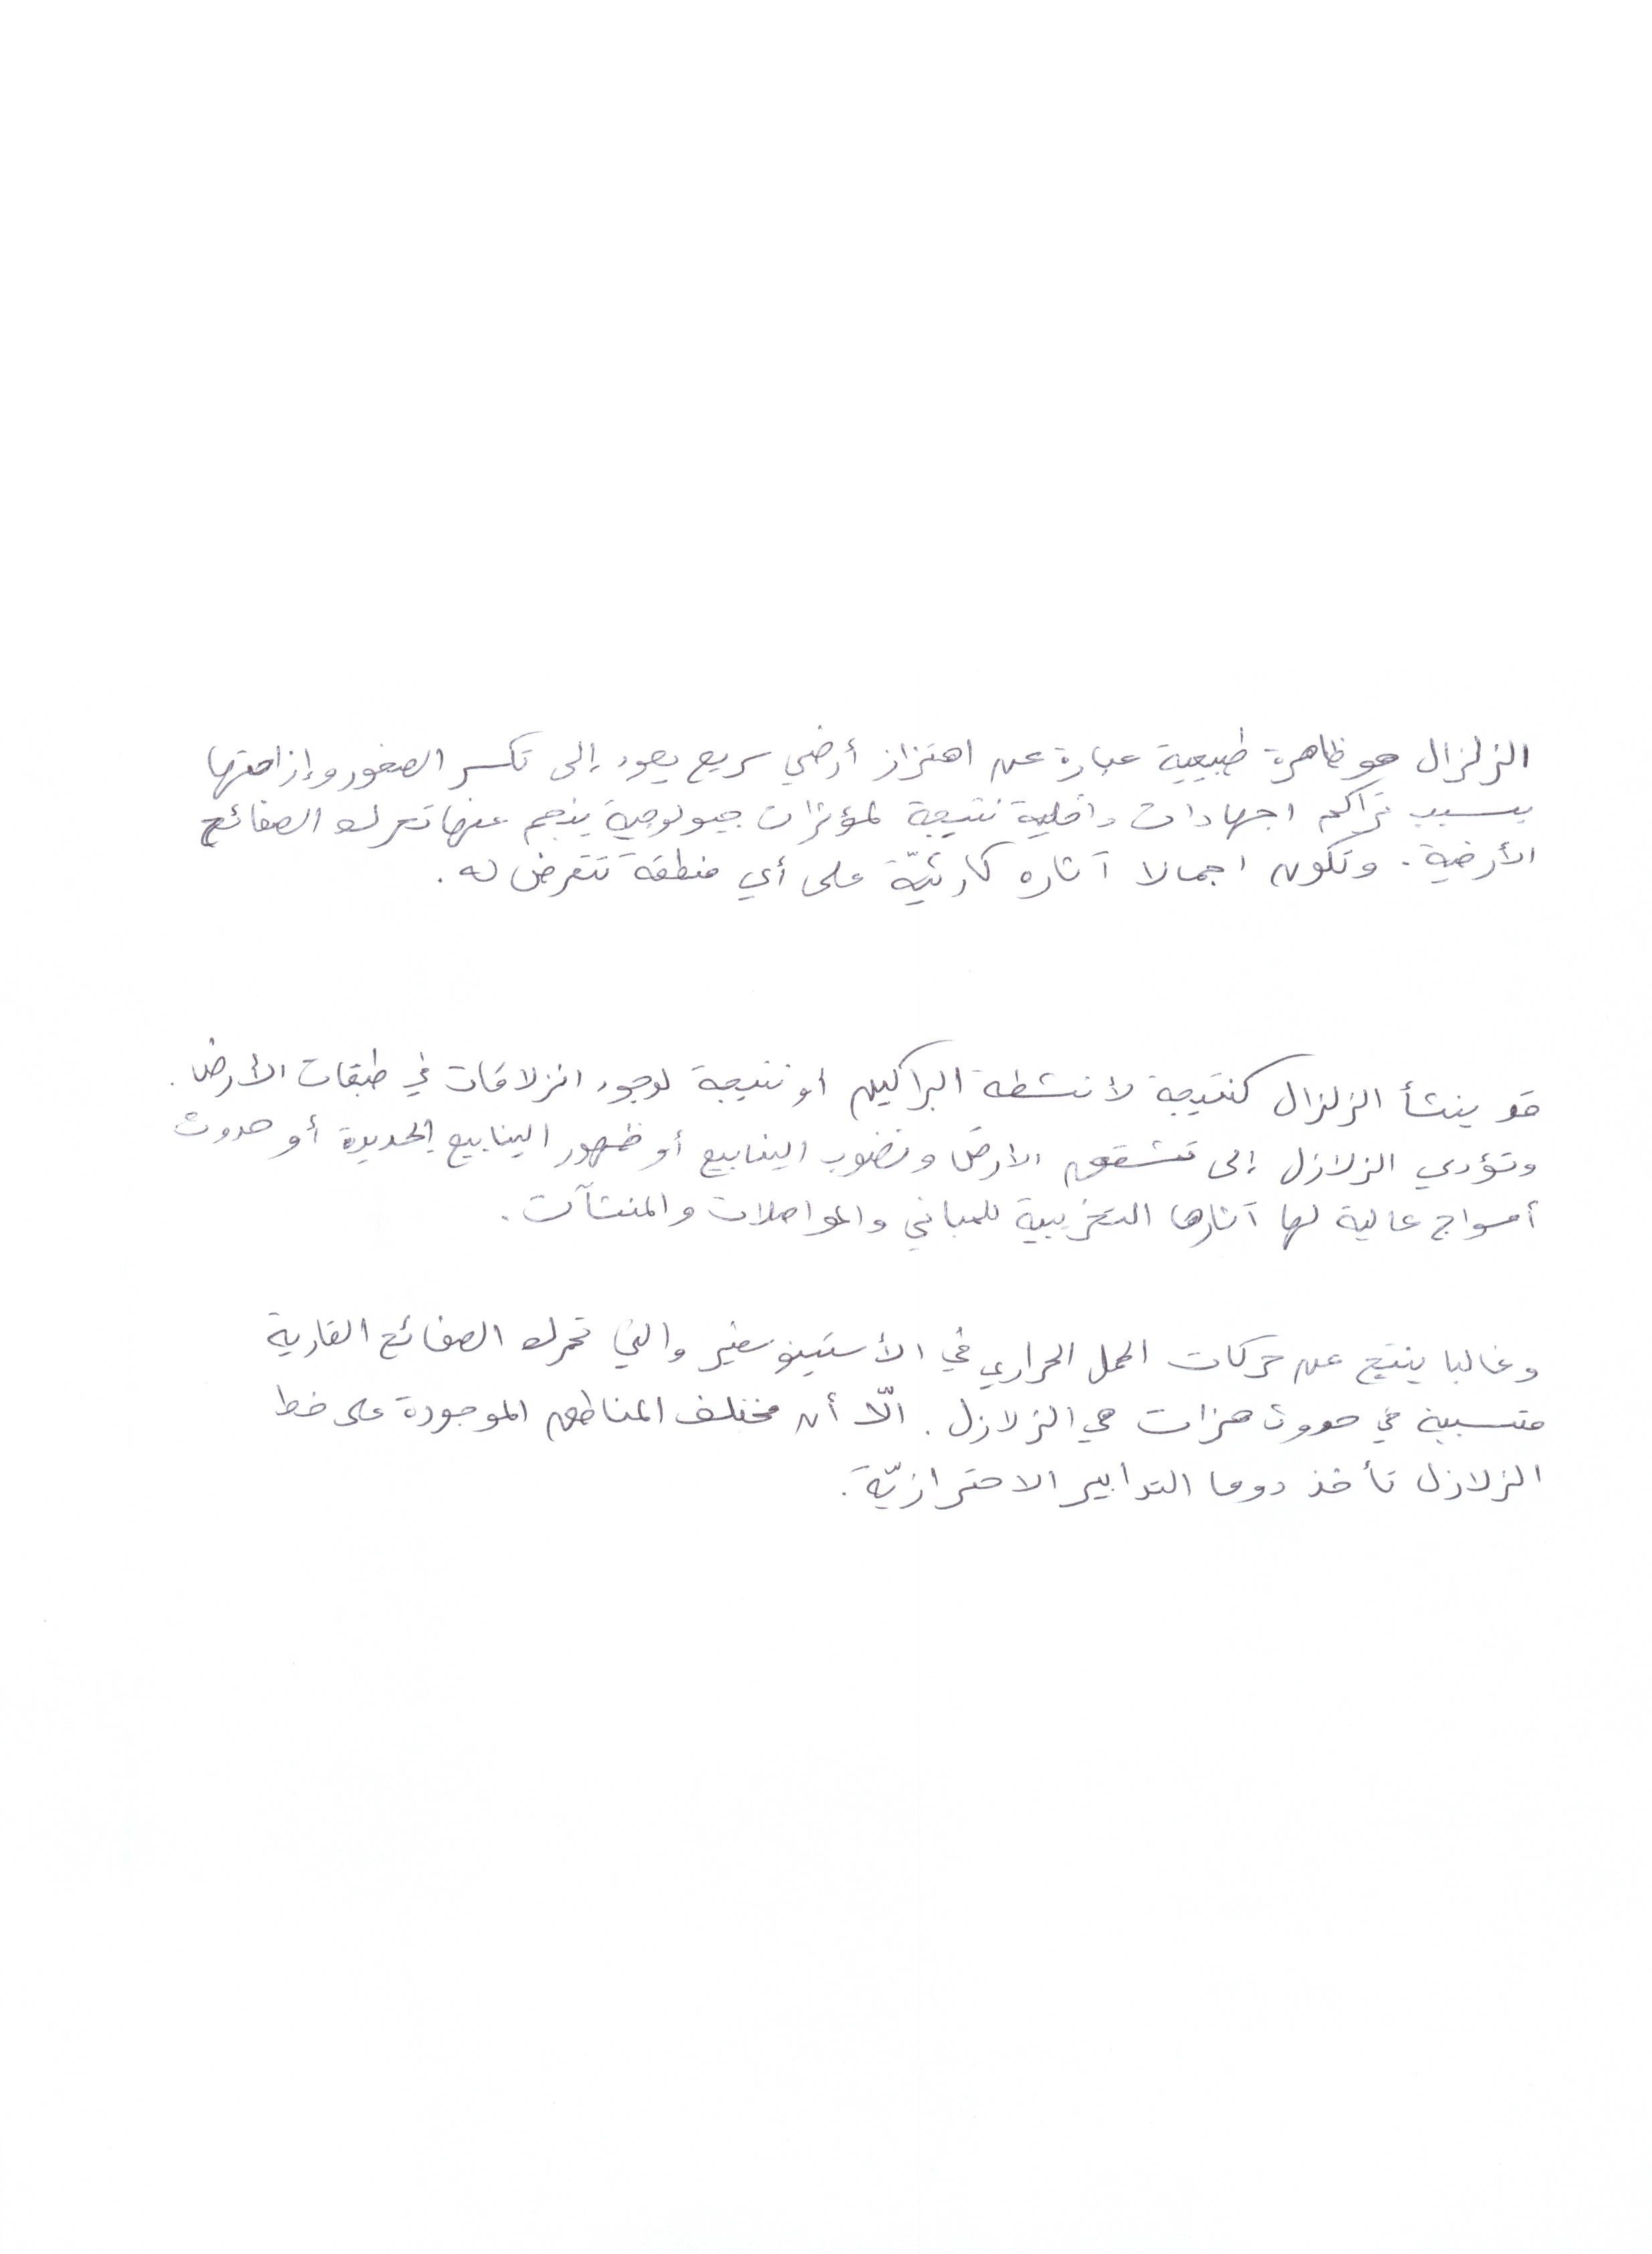 الزلزال هو ظاهرة طبيعية عبارة عن اهتزاز أرضي سريع يعود إلى تكسر الصخور وإزاحتها
بسبب تراكم اجهادات داخلية نتيجة لمؤثرات جيولوجية ينجم عنها تحرك الصفائح
الأرضية. وتكون اجمالا آثاره كارثيّة على أي منطقة تتعرض له.
قد ينشأ الزلزال كنتيجة لأنشطة البراكين أو نتيجة لوجود انزلاقات في طبقات الأرض.
وتؤدي الزلازل إلى تشقق الارض ونضوب الينابيع أو ظهور الينابيع الجديدة أو حدوث
أمواج عالية لها آثارها التخريبية للمباني والمواصلات والمنشآت.
وغالبا ينتج عن حركات الحمل الحراري في الأستينوسفير والتي تحرك الصفائح القارية
متسببة في حدوث هزات هي الزلازل. الّا أن مختلف المناطق الموجودة على خط
الزلازل تأخذ دوما التدابير الاحترازيّة.